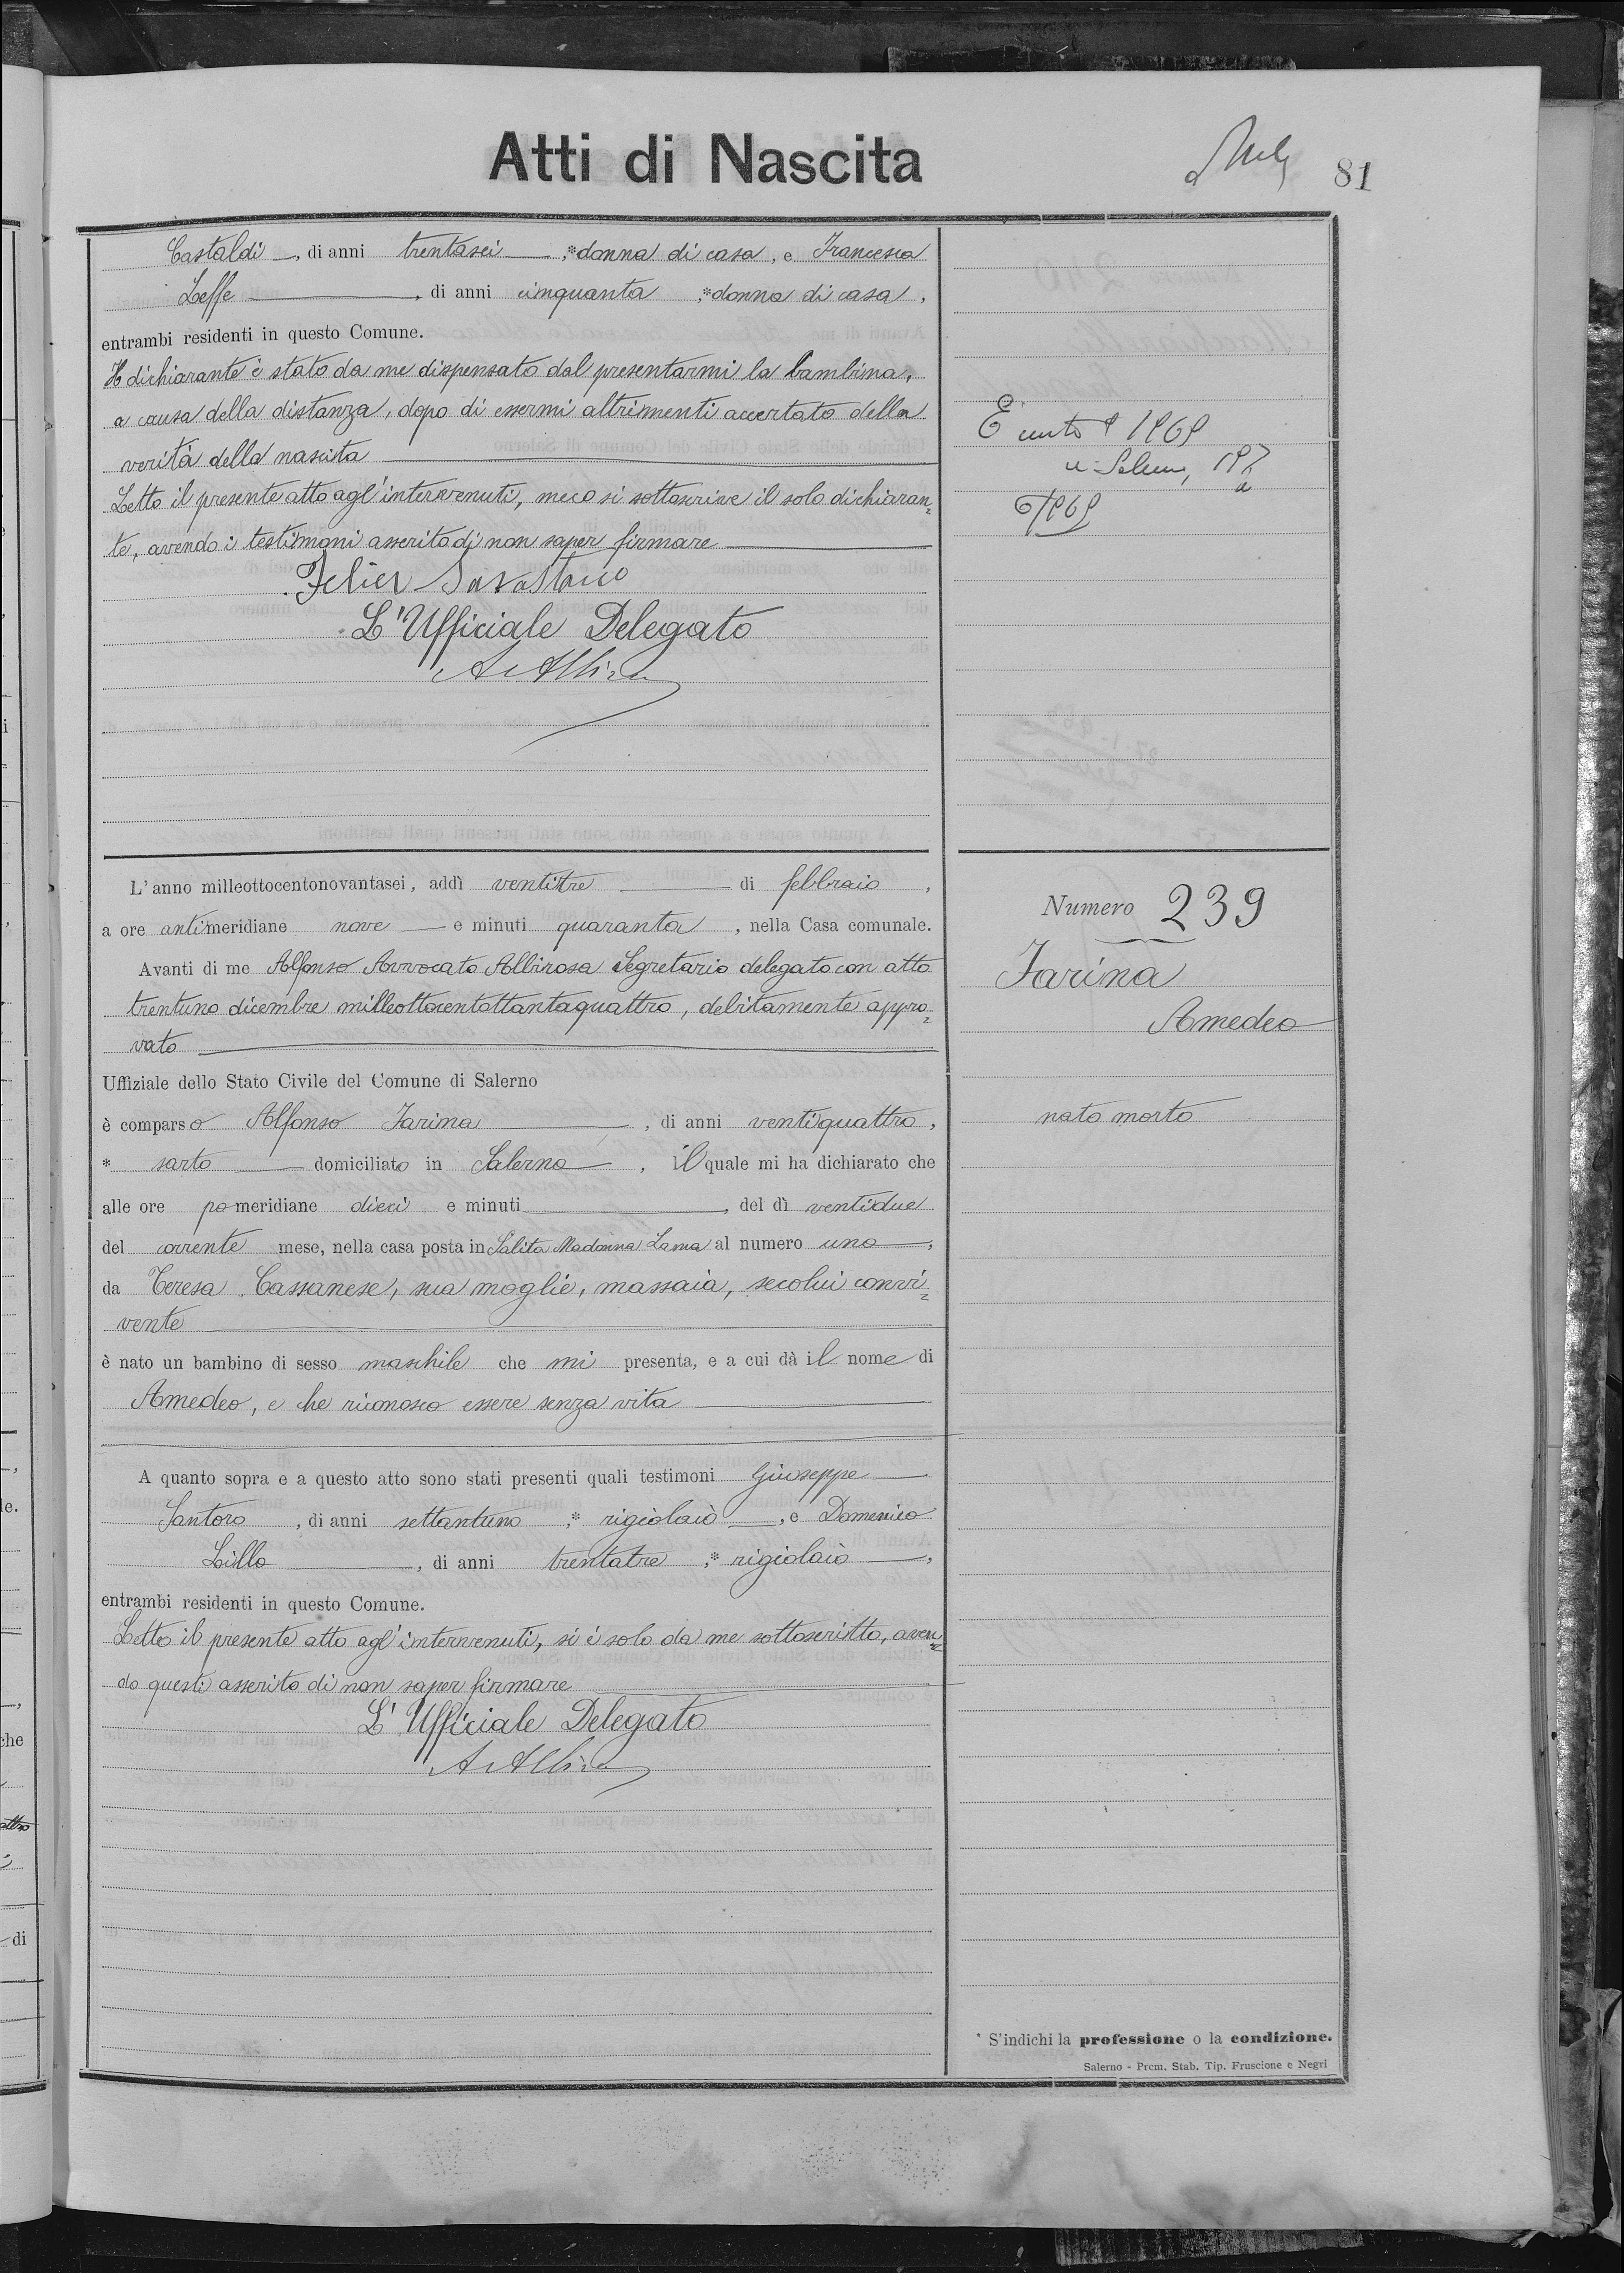 Atti di Nascita
81
Castaldi, di anni trentasei, *donna di casa, e Francesca
Leffe, di anni cinquanta, *donna di casa,
entrambi residenti in questo Comune.
Il dichiarante è stato da me dispensato dal presentarmi la bambina,
a causa della distanza, dopo di essermi altrimenti accertato della
verità della nascita
Letto il presente atto agl'intervenuti, meco si sottoscrive il solo dichiaran=
te, avendo i testimoni asserito di non saper firmare
L'Ufficiale Delegato
L'anno milleottocentonovantasei, addì ventitre di febbraio,
a ore antimeridiane nove e minuti quaranta, nella Casa comunale.
Avanti di me Alfonso Avvocato Albirosa Segretario delegato con atto
trentuno dicembre milleottocentottantaquattro, debitamente appro=
vato
Uffiziale dello Stato Civile del Comune di Salerno
è comparso Alfonso Farina, di anni ventiquattro,
* sarto domiciliato in Salerno, il quale mi ha dichiarato che
alle ore pomeridiane dieci e minuti, del dì ventidue
del corrente mese, nella casa posta in Salita Madonna Lama al numero uno,
da Teresa Cassanese, sua moglie, massaia, secolui convi=
vente
è nato un bambino di sesso maschile che mi presenta, e a cui dà il nome di
Amedeo, e che riconosco essere senza vita
A quanto sopra e a questo atto sono stati presenti quali testimoni Giuseppe
Santoro, di anni settantuno, * rigiolaio, e Domenico
Lillo, di anni trentatre, * rigiolaio,
entrambi residenti in questo Comune.
Letto il presente atto agl'intervenuti, si è solo da me sottoscritto, aven=
do questi asserito di non saper firmare
L'Ufficiale Delegato
Numero 239
Farina
Amedeo
nato morto
* S'indichi la professione o la condizione.
Salerno - Prem. Stab. Tip. Fruscione e Negri